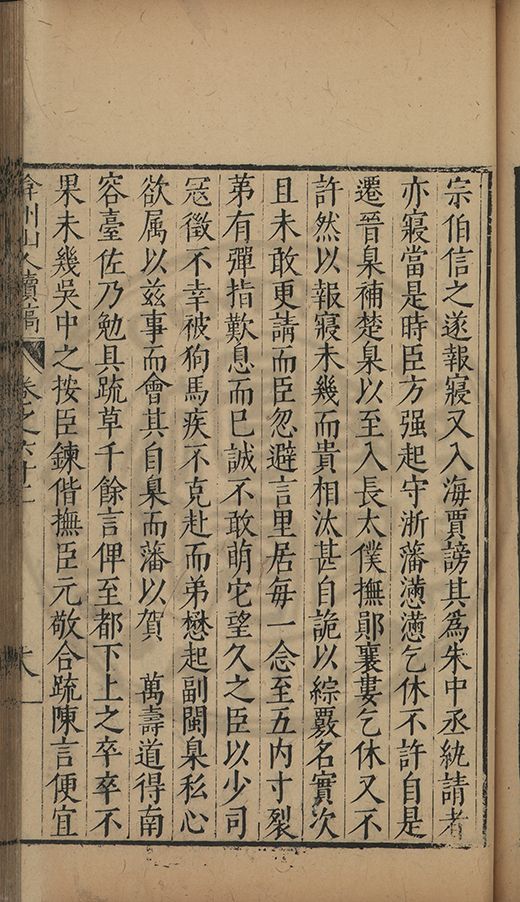 宗伯信之遂報寢又入海賈謗其為朱中丞紈請者
亦寢當是時臣方强起守浙藩懣懣乞休不許自是
遷晉臬補楚臬以至入長太僕撫鄖襄婁乞休又不
許然以報寢未幾而貴相汰甚自詭以綜覈名實次
且未敢更請而臣忽避言里居每一念至五内寸裂
苐有彈指歎息而已誠不敢萌它望久之臣以少司
冦徵不幸被狗馬疾不克赴而弟懋起副閩臬私心
欲属以兹事而會其自臬而藩以賀 萬壽道得南
容臺佐乃勉具疏草千餘言俾至都下上之卒卒不
果未幾吳中之按臣鍊偕撫臣元敬合疏陳言便宜
弇州山人續稿 卷之六十二 六